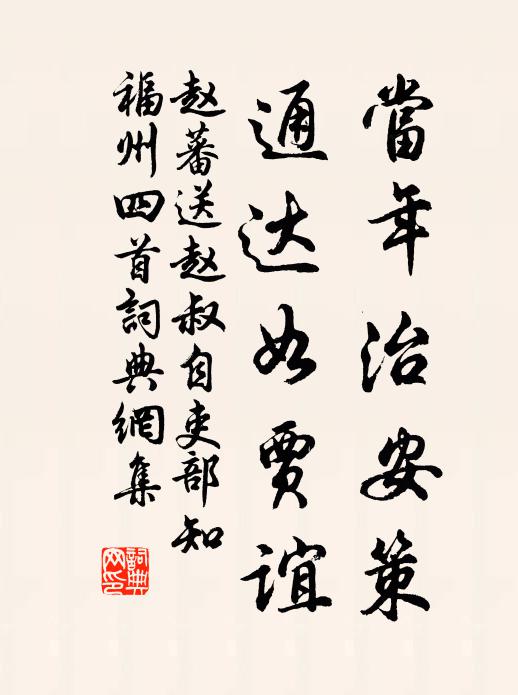 當年治安策
通达如賈誼
赵蕃送赵叔自吏部知
福州四首詞典網集
詞典网印